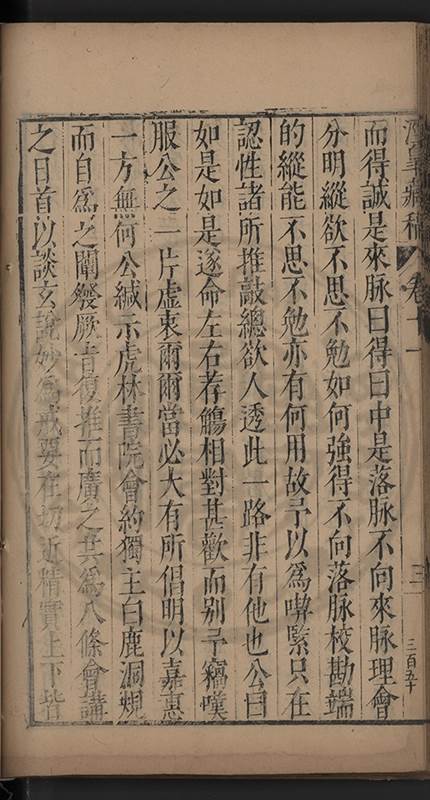 涇皐藏稿 卷十一 三
而得誠是來脉曰得曰中是落脉不向來脉理會
分明縱欲不思不勉如何強得不向落脉校勘端
的縱能不思不勉亦有何用故予以爲喫緊只在
認性諸所推敲總欲人透此一路非有他也公曰
如是如是遂命左右荐觴相對甚歡而别予竊嘆
服公之一片虛衷爾爾當必大有所倡明以嘉惠
一方無何公緘示虎林書院會約獨主白鹿洞規
而自爲之闡發厥旨復推而廣之共爲八條會講
之日首以談玄說妙爲戒要在切近精實上下皆
三百五十